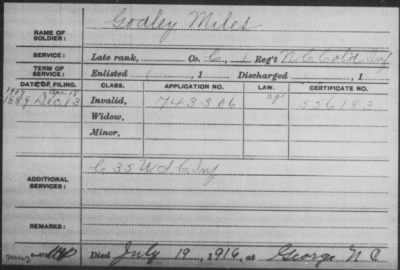 NAME OF SOLDIER: Godley Miles
SERVICE: Late rank, Co. C, 1 Reg't N.C. Cold. Inf
TERM OF SERVICE: Enlisted , 1 Discharged , 1
DATE OF FILING. CLASS. APPLICATION NO. LAW. CERTIFICATE NO.
1889 Dec 13 Invalid, 743306 556183
Widow,
Minor,
ADDITIONAL SERVICES: C 35 U.S.C. Inf
REMARKS:
Died July 19, 1916, at George N C